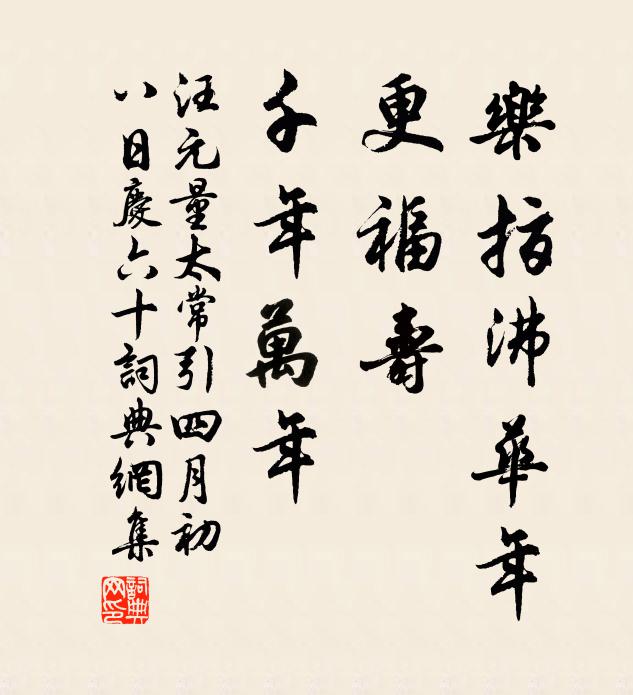 樂指沸華年
更福壽
千年萬年
汪元量太常引四月初
八日慶六十詞典網集
詞典
网印